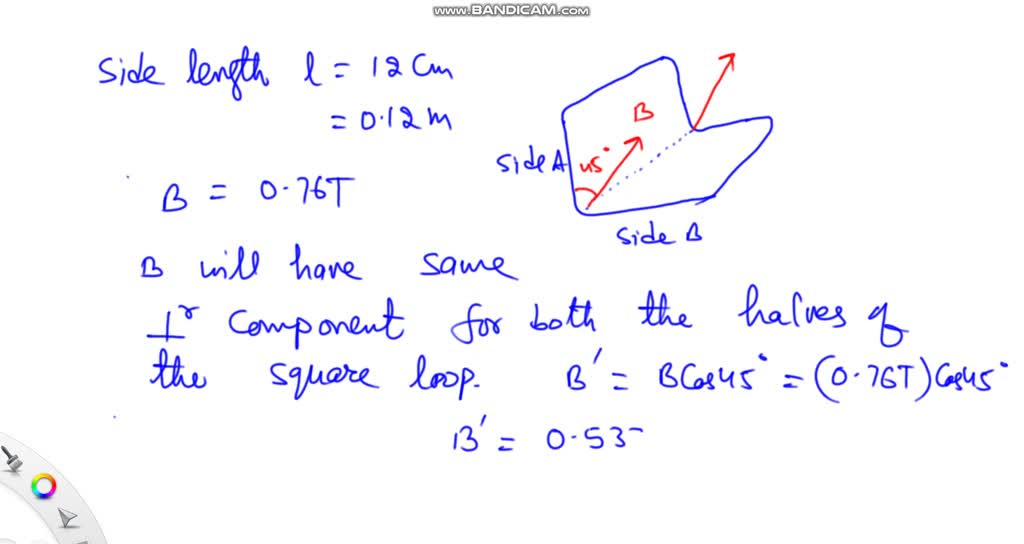 www.BANDICAM.com
Side length l = 12 Cm
= 0.12 m
B = 0.76T
B
Side A
45°
Side B
B will have same
⊥r Component for both the halves of
the square loop. B' = BCos45° = (0.76T) Cos45°
B' = 0.53